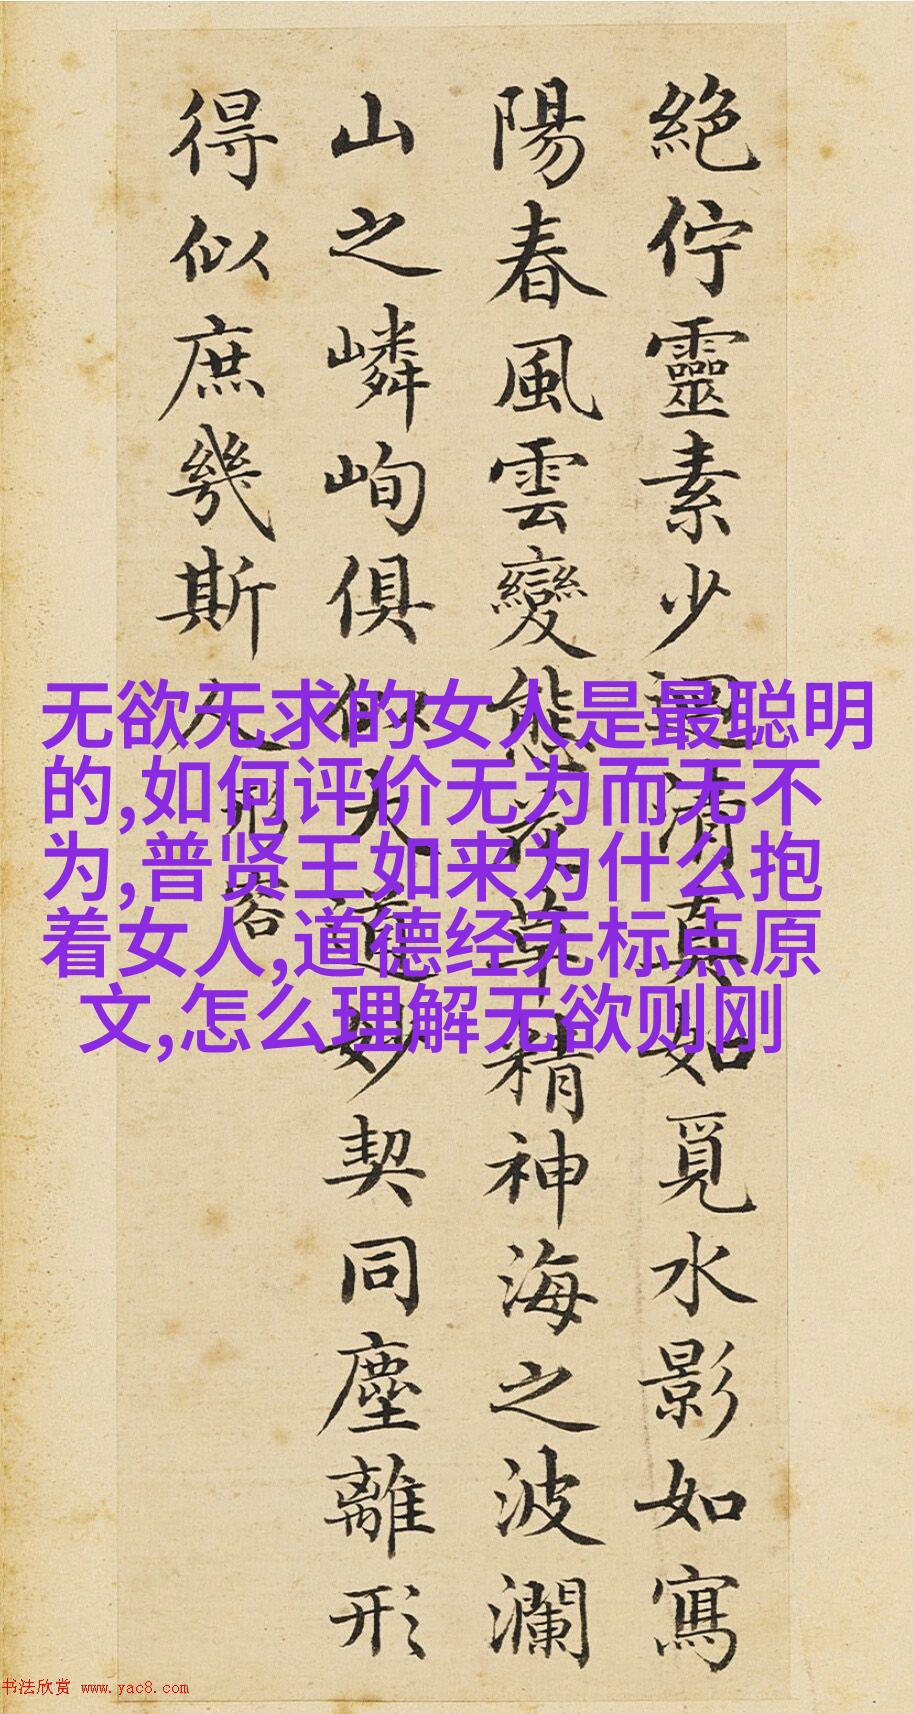 絕佇靈素少迴清真如覓水影如寫
陽春風雲變態花草精神海之波瀾
山之嶙峋俱似大道妙契同塵離形
得似庶幾斯人
形容
无欲无求的女人是最聪明
的,如何评价无为而无不
为,普贤王如来为什么抱
着女人,道德经无标点原
文,怎么理解无欲则刚
书法欣赏 www.yac8.com